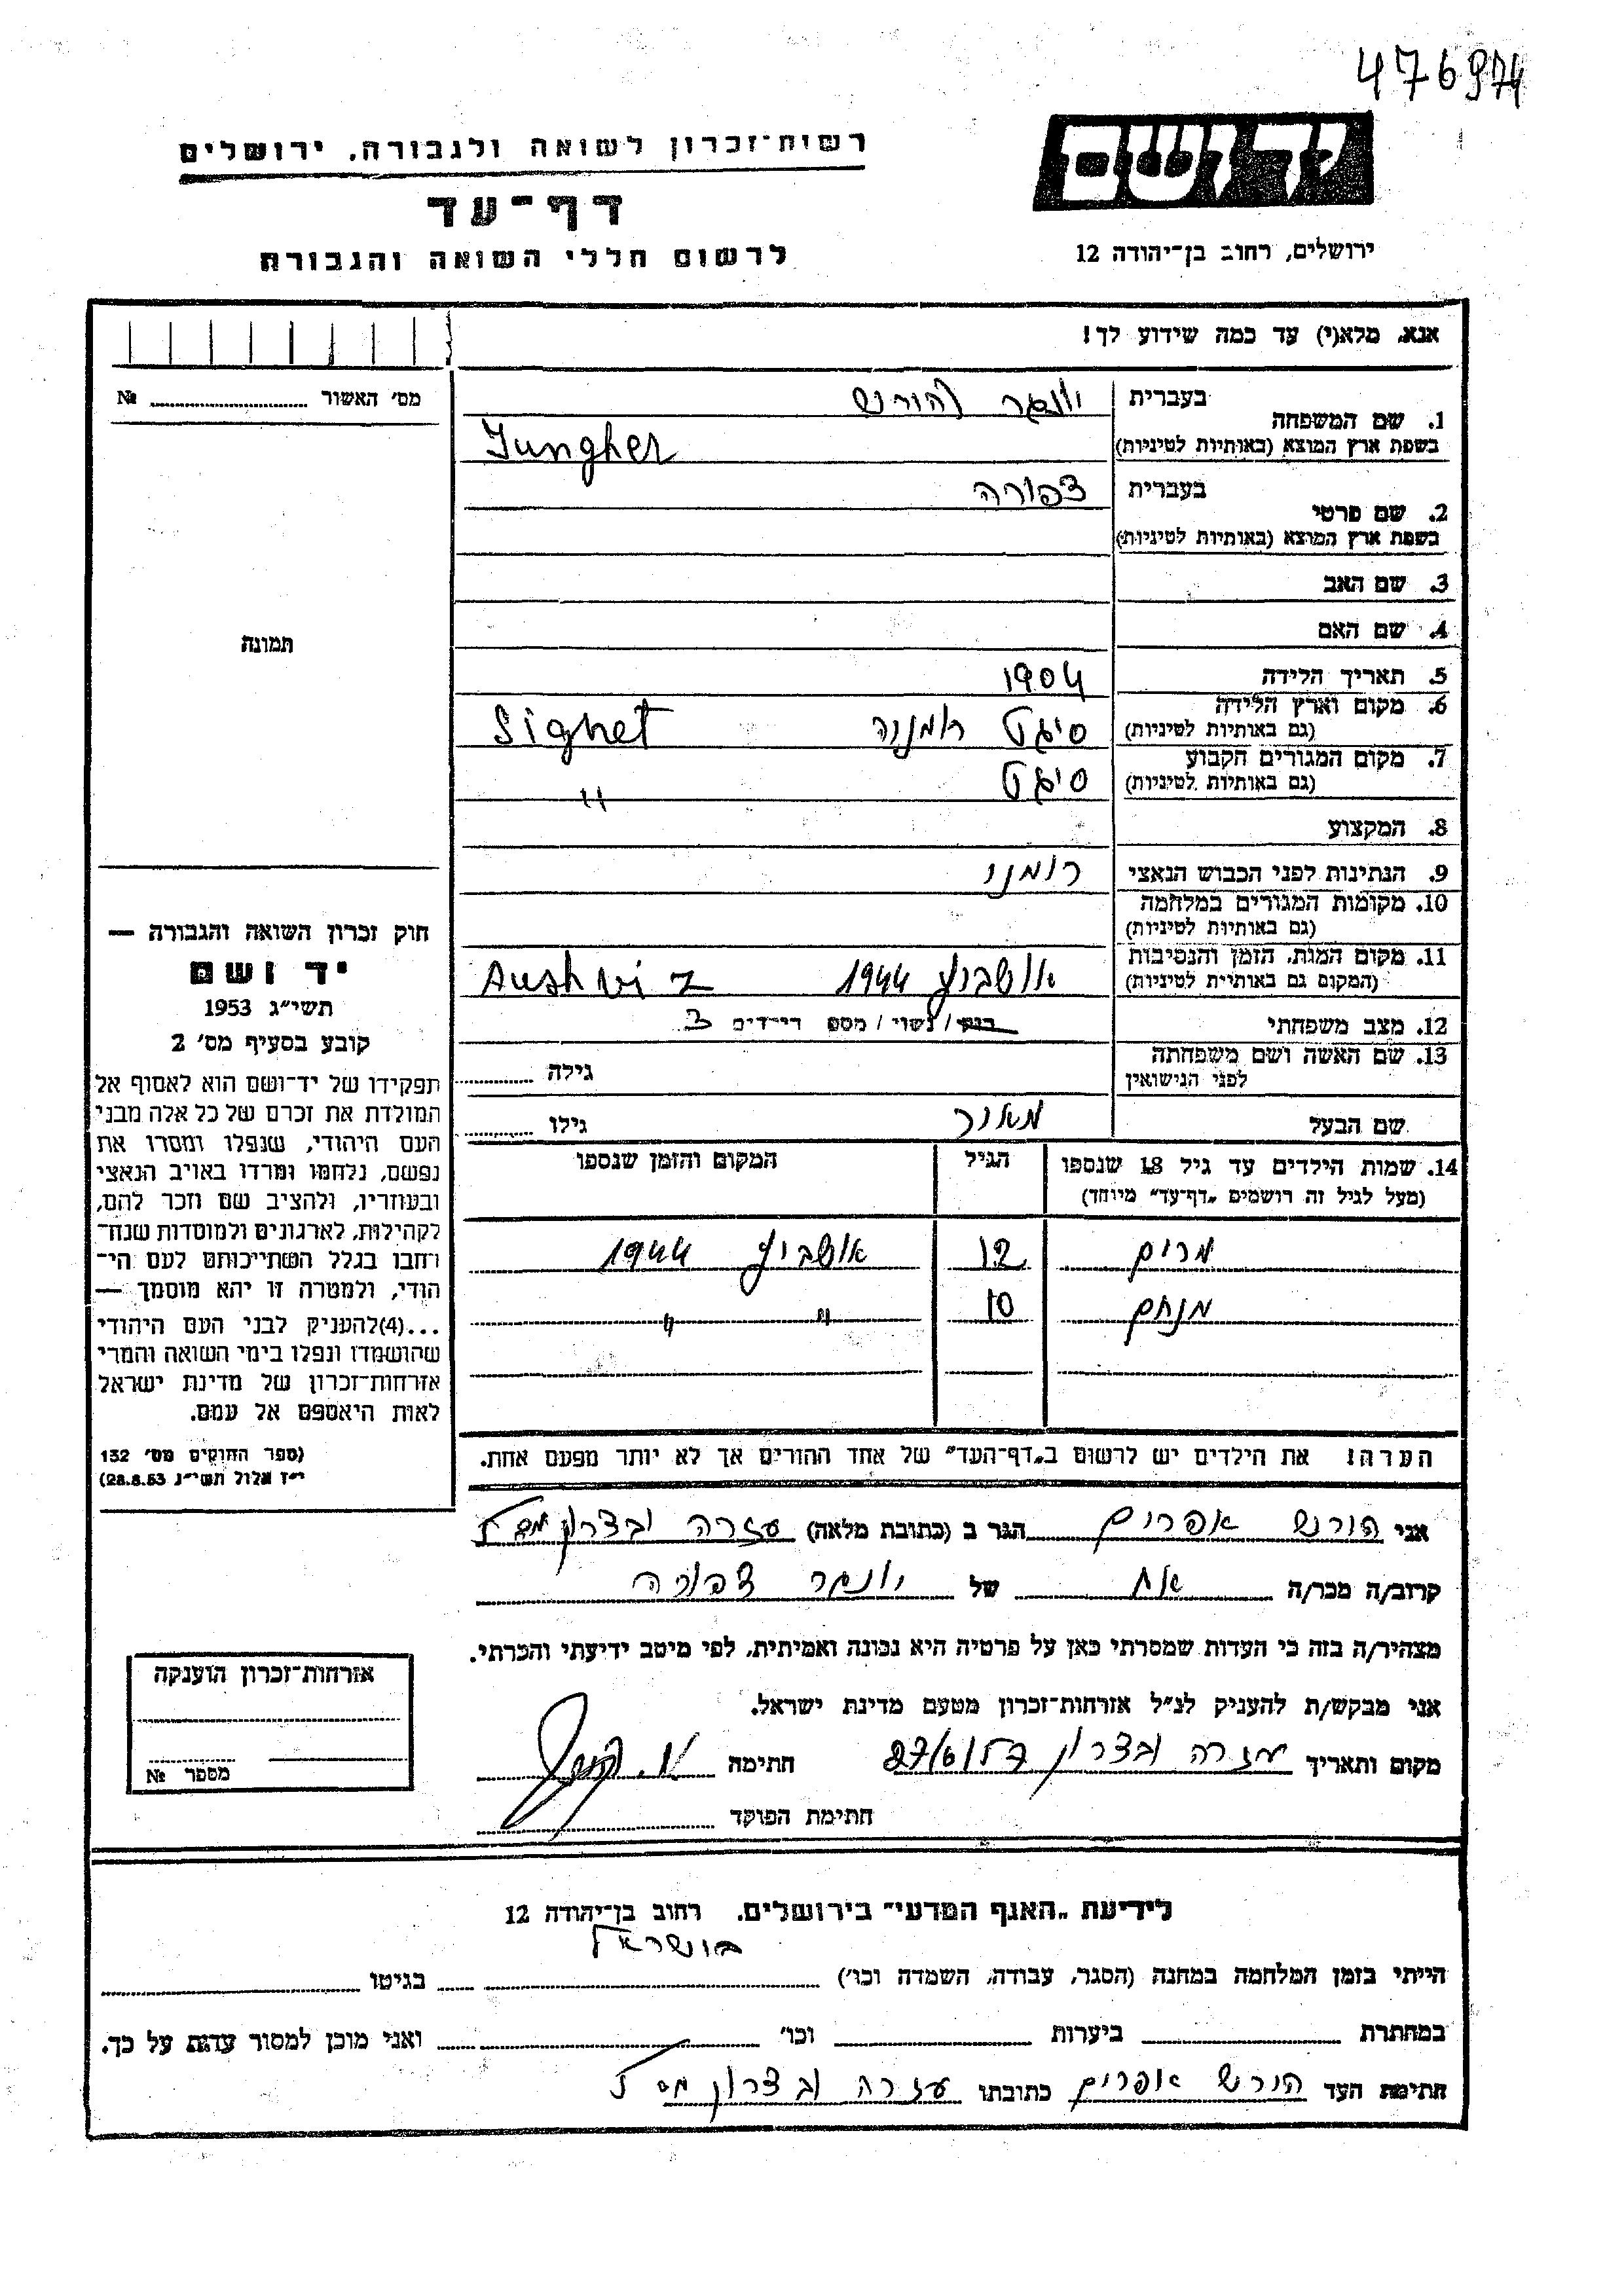 476974
יד ושם
רשות־זכרון לשואה ולגבורה, ירושלים
דף־עד
לרשום חללי השואה והגבורה
ירושלים, רחוב בן־יהודה 12
אנא, מלא(י) עד כמה שידוע לך!
מס' האשור № 
1. שם המשפחה בעברית יונגר
בשפת ארץ המוצא (באותיות לטיניות) Jungher
2. שם פרטי בעברית צפורה
בשפת ארץ המוצא (באותיות לטיניות)
3. שם האב
4. שם האם
תמונה
5. תאריך הלידה 1904
6. מקום וארץ הלידה (גם באותיות לטיניות) סיגט רומניה Sighet
7. מקום המגורים הקבוע (גם באותיות לטיניות) סיגט "
8. המקצוע
9. הנתינות לפני הכבוש הנאצי רומני
10. מקומות המגורים במלחמה (גם באותיות לטיניות)
11. מקום המות, הזמן והנסיבות (המקום גם באותיות לטיניות) אושביץ 1944 Aushviz
12. מצב משפחתי רווק / נשוי / מספר ילדים 3
13. שם האשה ושם משפחתה לפני הנישואין גילה
שם הבעל מאור גילו
14. שמות הילדים עד גיל 18 שנספו הגיל המקום והזמן שנספו
(מעל לגיל זה רושמים „דף־עד" מיוחד)
מרים 12 אושביץ 1944
מנחם 10 " "
הערה! את הילדים יש לרשום ב„דף־העד" של אחד ההורים אך לא יותר מפעם אחת.
חוק זכרון השואה והגבורה —
יד ושם
תשי"ג 1953
קובע בסעיף מס' 2
תפקידו של יד־ושם הוא לאסוף אל
המולדת את זכרם של כל אלה מבני
העם היהודי, שנפלו ומסרו את
נפשם, נלחמו ומרדו באויב הנאצי
ובעוזריו, ולהציב שם וזכר להם,
לקהילות, לארגונים ולמוסדות שנח־
רחבו בגלל השתייכותם לעם הי־
הודי, ולמטרה זו יהא מוסמך —
...(4)להעניק לבני העם היהודי
שהושמדו ונפלו בימי השואה והמרי
אזרחות־זכרון של מדינת ישראל
לאות היאספם אל עמם.
(ספר החוקים מס' 132
י"ז אלול תשי"ג 28.8.53)
אני הורש אפרים הגר ב (כתובת מלאה) עזרה ובצרון
קרוב/ה מכר/ה אח של יונגר צפורה
מצהיר/ה בזה כי העדות שמסרתי כאן על פרטיה היא נכונה ואמיתית, לפי מיטב ידיעתי והכרתי.
אני מבקש/ת להעניק לנ"ל אזרחות־זכרון מטעם מדינת ישראל.
מקום ותאריך עזרה ובצרון 27/6/57 חתימה
חתימת הפוקד
אזרחות־זכרון הוענקה
מספר №
לידיעת „האגף המדעי" בירושלים, רחוב בן־יהודה 12
הייתי בזמן המלחמה במחנה (הסגר, עבודה, השמדה וכו') בגיטו
במחתרת ביערות וכו' ואני מוכן למסור עדות על כך.
חתימת העד הורש אפרים כתובתו עזרה ובצרון מס